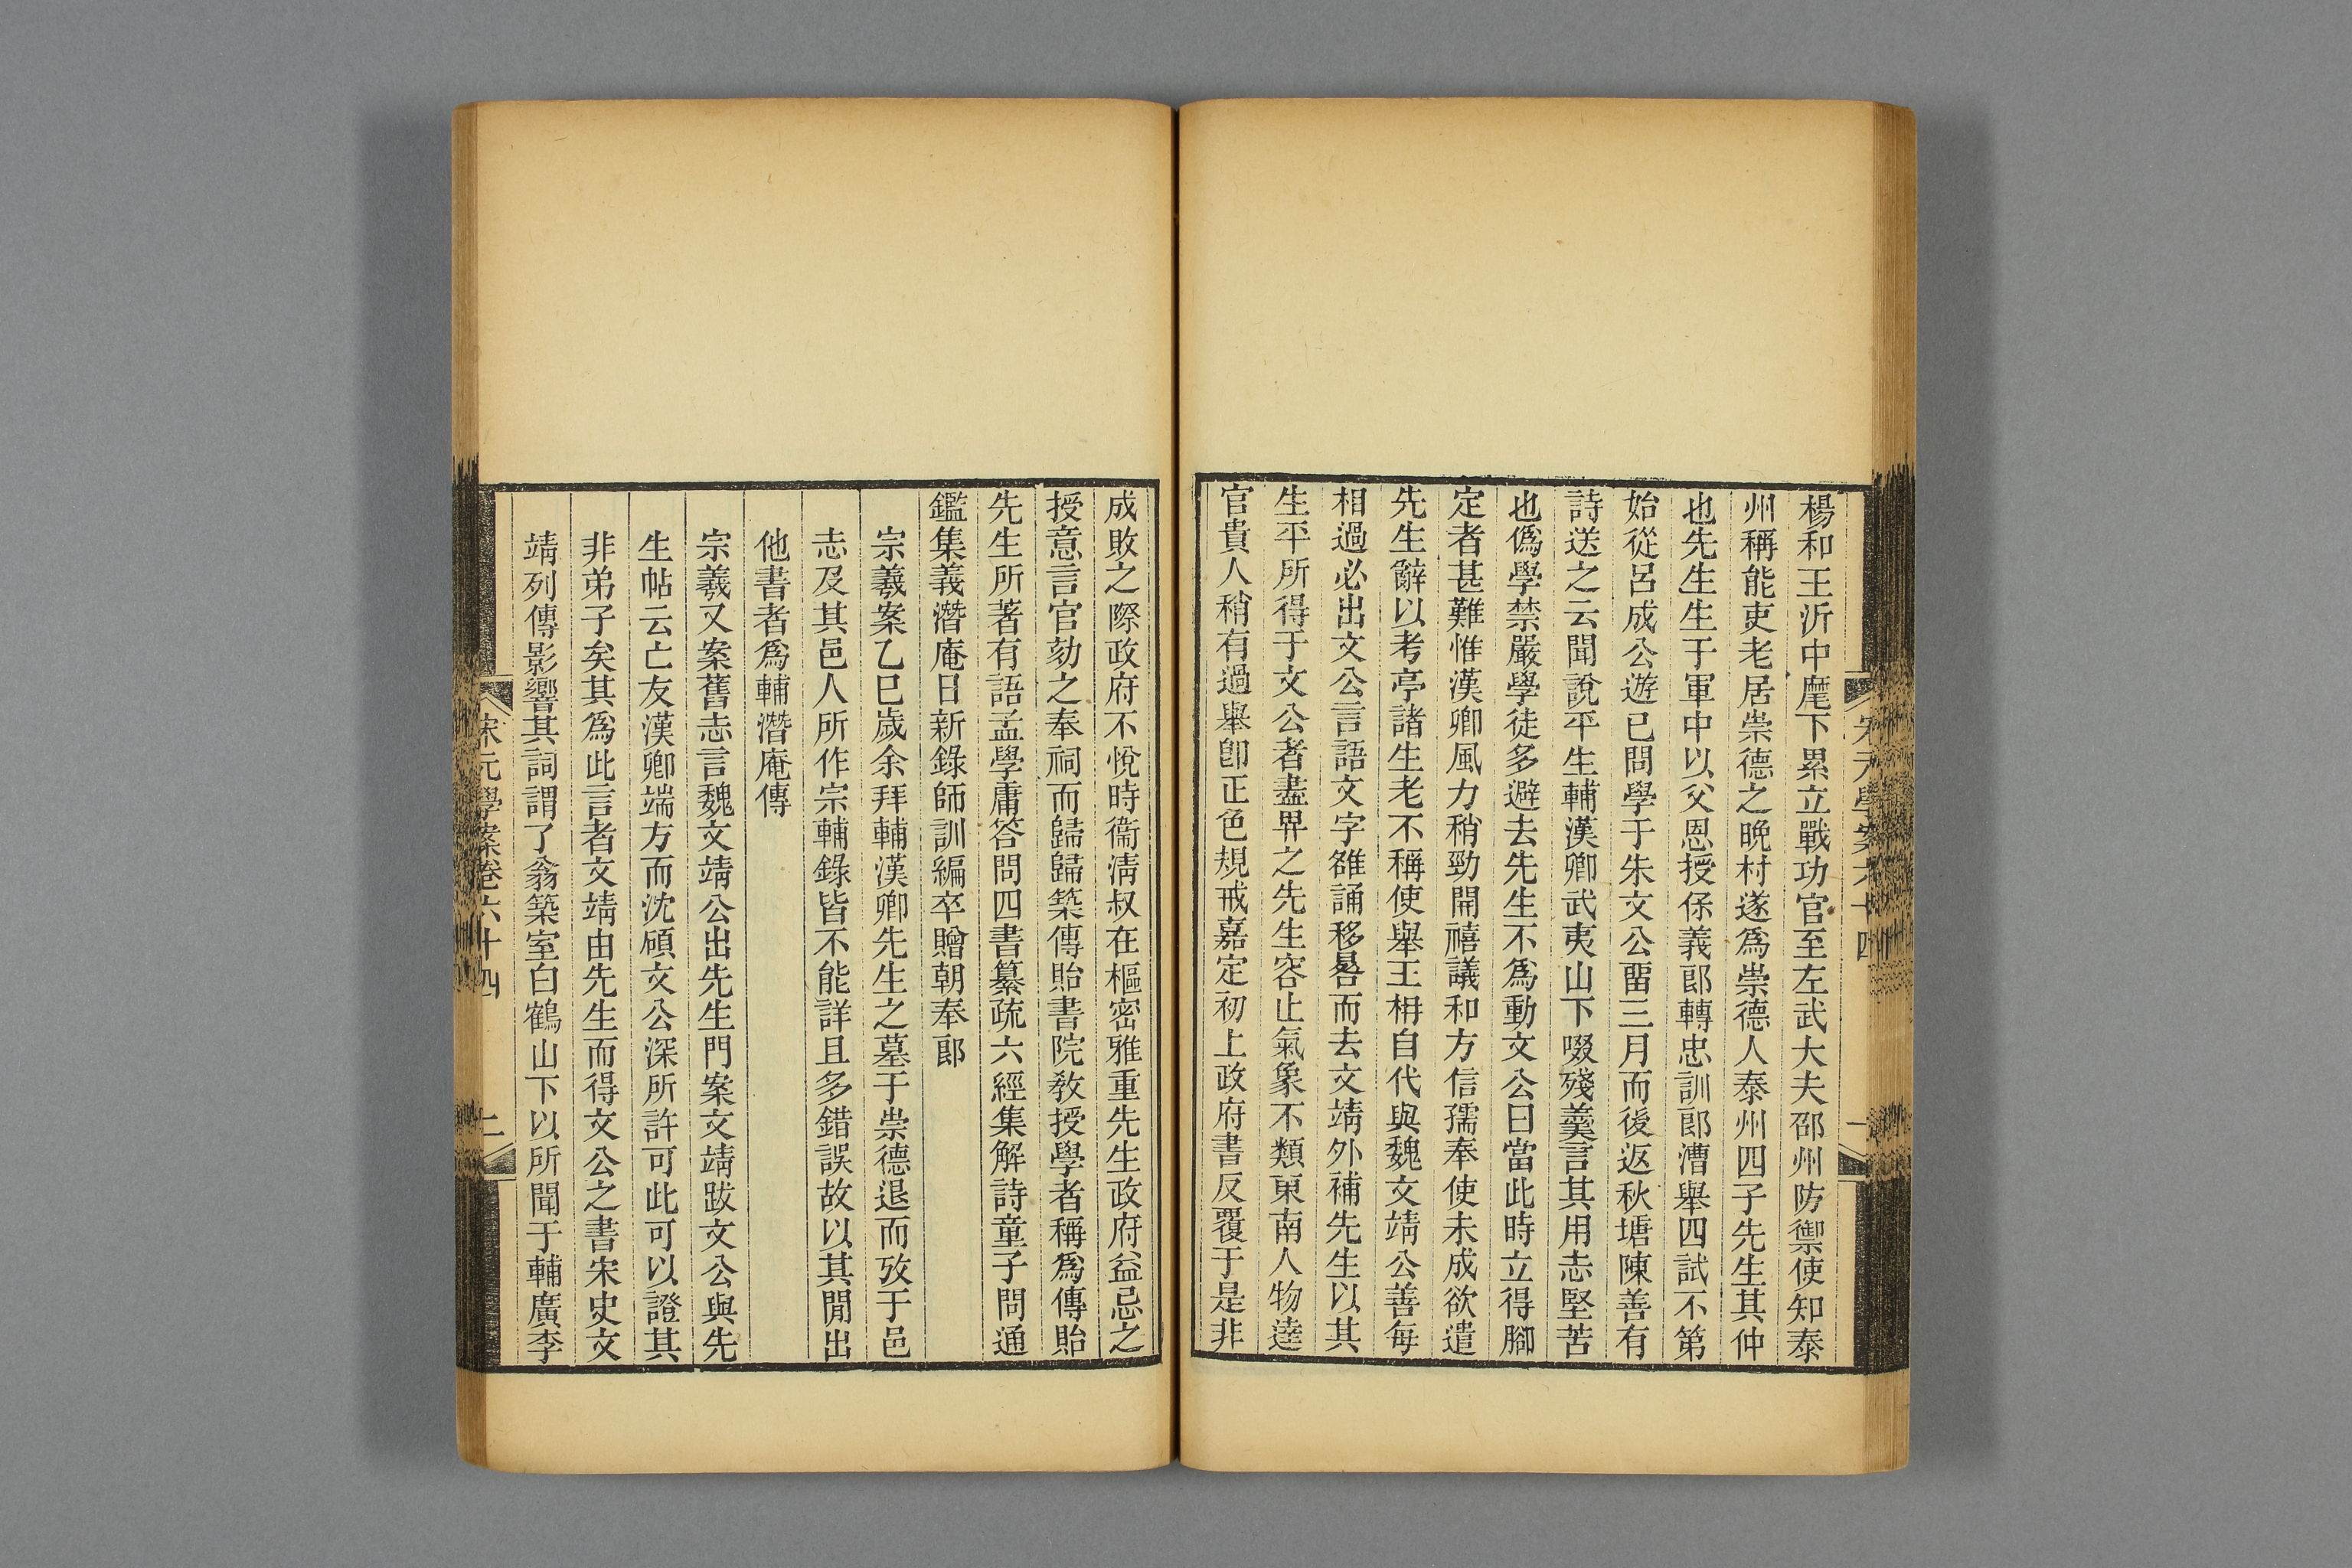 楊和王沂中麾下累立戰功官至左武大夫邵州防禦使知泰
州稱能吏老居崇德之晚村遂爲崇德人泰州四子先生其仲
也先生生于軍中以父恩授保義郎轉忠訓郎漕舉四試不第
始從呂成公遊已問學于朱文公畱三月而後返秋塘陳善有
詩送之云聞說平生輔漢卿武夷山下啜殘羹言其用志堅苦
也僞學禁嚴學徒多避去先生不爲動文公曰當此時立得腳
定者甚難惟漢卿風力稍勁開禧議和方信孺奉使未成欲遣
先生辭以考亭諸生老不稱使舉王枏自代與魏文靖公善每
相過必出文公言語文字雒誦移晷而去文靖外補先生以其
生平所得于文公者盡畀之先生容止氣象不類東南人物達
官貴人稍有過舉卽正色規戒嘉定初上政府書反覆于是非
成敗之際政府不悅時衞淸叔在樞密雅重先生政府益忌之
授意言官劾之奉祠而歸歸築傳貽書院敎授學者稱爲傳貽
先生所著有語孟學庸答問四書纂疏六經集解詩童子問通
鑑集義潛庵日新錄師訓編卒贈朝奉郎
宗羲案乙巳歲余拜輔漢卿先生之墓于崇德退而攷于邑
志及其邑人所作宗輔錄皆不能詳且多錯誤故以其閒出
他書者爲輔潛庵傳
宗羲又案舊志言魏文靖公出先生門案文靖跋文公與先
生帖云亡友漢卿端方而沈碩文公深所許可此可以證其
非弟子矣其爲此言者文靖由先生而得文公之書宋史文
靖列傳影響其詞謂了翁築室白鶴山下以所聞于輔廣李
宋元學案卷六十四
二